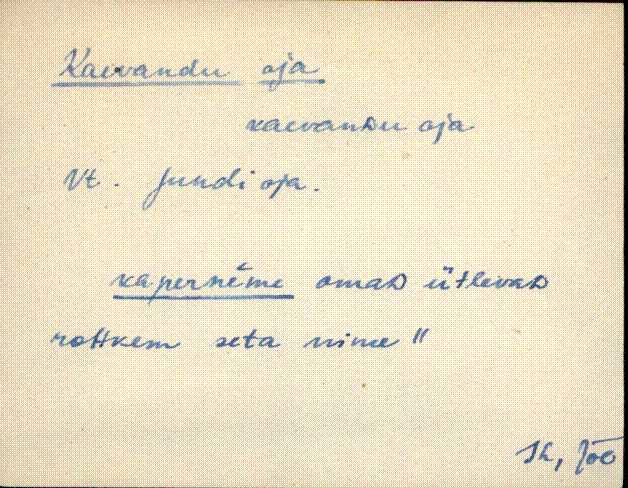 Kaevandu oja
kaevanDu oja
Vt. Jundi oja.
kapernéme omaD ütlevaD
rohkem seta nime"
Jõe